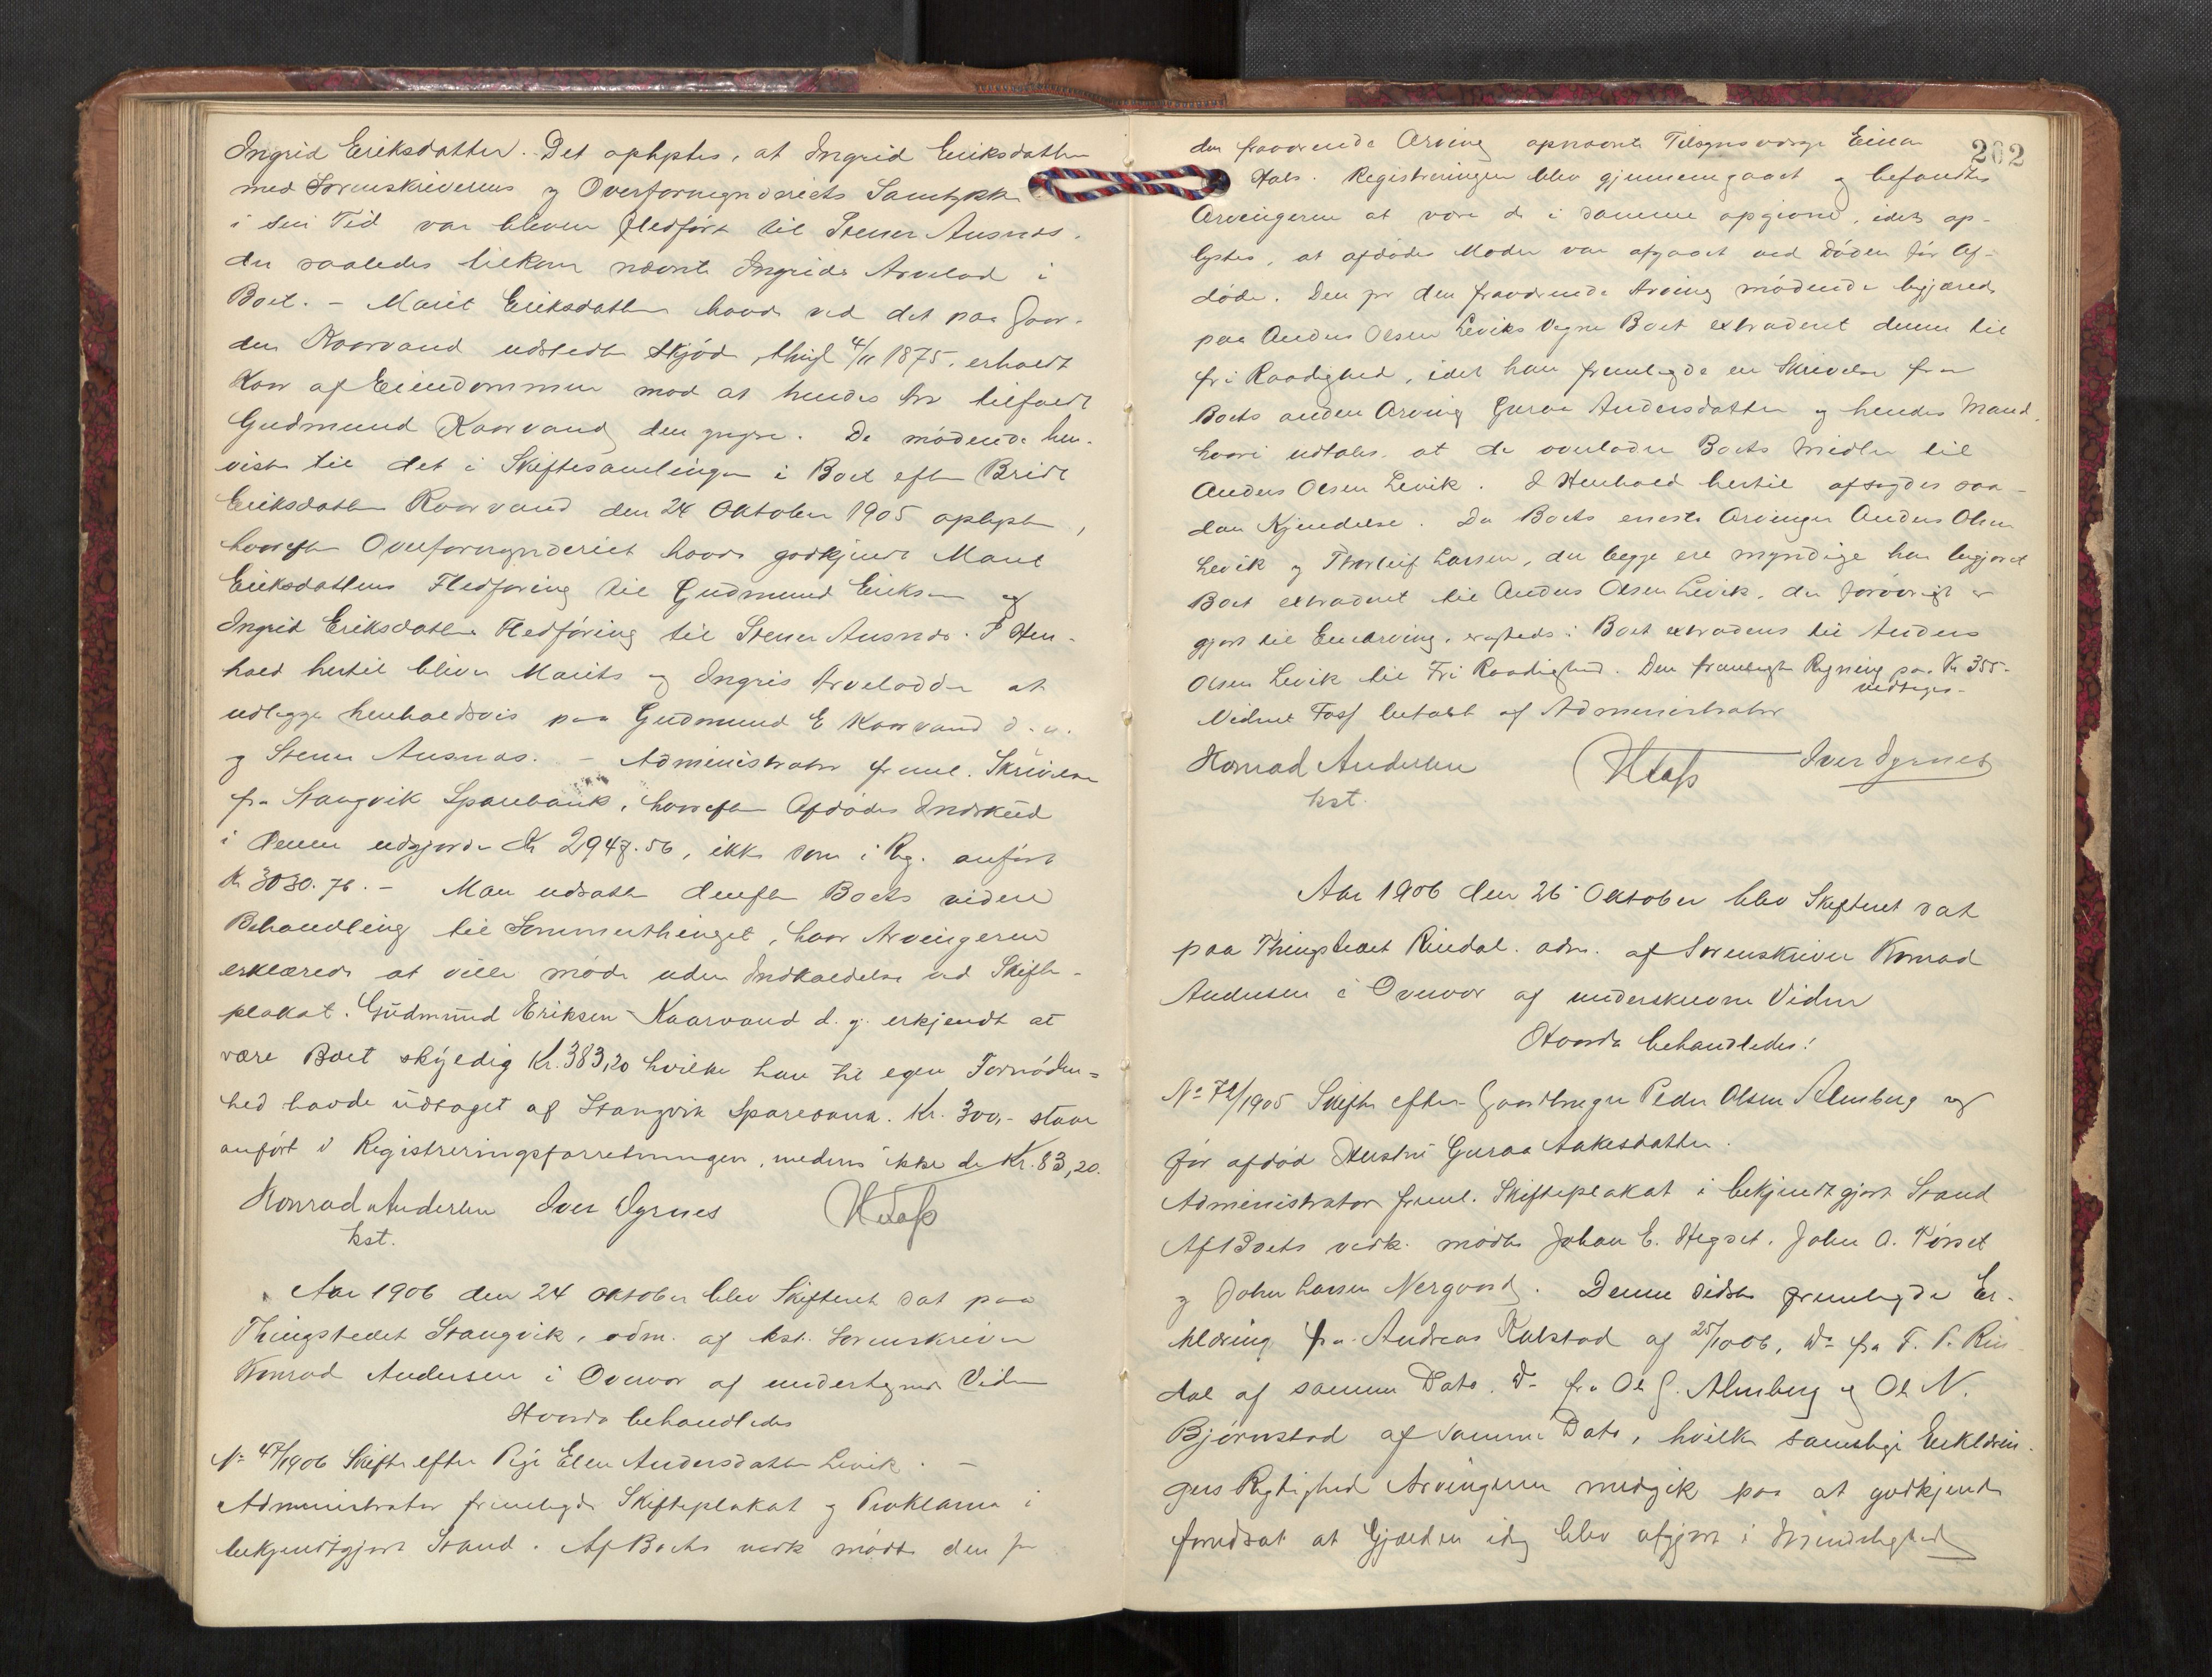 Ingrid Eriksdatter. Det oplystes, at Ingrid Eriksdatter
med Sorenskriverens og Overformynderiets Samtykke
i sin Tid var bleven fledført til Stener Ausnes,
der saaledes tilkom nævnte Ingrids Arvelod i
Boet. - Marit Eriksdatter havde ved det paa Gaar-
den Kaarvand udstedte Skjøde, thingl 4/11 1875, erholdt
Kaar af Eiendommen mod at hendes Arv tilfaldt
Gudmund Kaarvand den yngre. De mødende hen-
viste til det i Skiftesamlingen i Boet efter Bridt
Eriksdatter Kaarvand den 24 Oktober 1905 oplyste,
hvorefter Overformynderiet havde godkjendt Marit
Eriksdatters Fledføring til Gudmund Eriksen og
Ingrid Eriksdatters Fledføring til Stener Ausnes. I Hen-
hold hertil bliver Marits og Ingris Arvelodder at
udlægge henholdsvis paa Gudmund E Kaarvand d. y.
og Stener Ausnes. - Administrator freml. Skrivelse
fra Stangvik Sparebank, hvorefter Afdødes Indskud
i denne udgjorde Kr 2947.56, ikke som i Reg. anført
Kr 3030.76. - Man udsatte derefter Boets videre
Behandling til Sommerthinget, hvor Arvingerne
erklærede at ville møde uden Indkaldelse ved Skifte-
plakat. Gudmund Eriksen Kaarvand d. y. erkjendt at
være Boet skyldig Kr. 383,20 hvilke han til egen Fornøden=
hed havde udtaget af Stangvik Sparebank. Kr. 300,- staar
anført i Registreringsforretningen, medens ikke de Kr. 83,20.
Konrad Andersen Iver Dyrnes
kst.
Aar 1906 den 24 Oktober blev Skifteret sat paa
Thingstedet Stangvik, adm. af kst. Sorenskriver
Konrad Andersen i Overvær af undertegnede Vidner
Hvorda behandledes
No 47/1906 Skifte efter Pige Elen Andersdatter Levik. -
Administrator fremlagde Skifteplakat og Proklama i
bekjendtgjort Stand. Af Boets vedk mødte den for
202
den fraværende Arving opnævnte Tilsynsværge Einar
Hals. Registreringen blev gjennemgaaet og befandtes
Arvingerne at være de i samme opgivne, idet op-
lystes, at afdødes Moder var afgaaet ved Døden før Af-
døde. Den for den fraværende Arving mødende begjærede
paa Anders Olsen Leviks Vegne Boet extraderet denne til
fri Raadighed, idet han fremlagde en Skrivelse fra
Boets anden Arving Guraa Andersdatter og hendes Mand,
hvori udtales, at de overlader Boets Midler til
Anders Olsen Levik. I Henhold hertil afsagdes saa-
dan Kjendelse. Da Boets eneste Arvinger Anders Olsen
Levik og Thorleif Larsen, der begge ere myndige har begjæret
Boet extraderet til Anders Olsen Levik, der forøvrigt er
gjort til Enearving, eragtedes: Boet extraderes til Anders
Olsen Levik til Fri Raadighed. Den fremlagte Regning paa Kr 355-
vedtages-
Vidnet Foss betalt af Administrator
Konrad Andersen Iver Dyrnes
kst.
Aar 1906 den 26 Oktober blev Skifteret sat
paa Thingstedet Rindal. adm. af Sorenskriver Konrad
Andersen i Overvær af underskrevne Vidner
Hvorda behandledes:
No 72/1905 Skifte efter Gaardbruger Peder Olsen Almberg og
før afdød Hustru Guraa Aakesdatter.
Administrator freml. Skifteplakat i bekjendtgjort Stand
Af Boets vedk. mødte Johan E. Hegset, John O. Tørset
og John Larsen Nergaard. Denne sidste fremlagde Er-
klæring fra Andreas Kalstad af 25/10 06, Do fra T. P. Rin-
dal af samme Dato, Do fra Ol G. Almberg og Ol N.
Bjørnstad af samme Dato, hvilke samtlige Erklærin-
gers Rigtighed Arvingerne medgik paa at godkjende
forudsat at Gjælden idag blev afgjort i Mindelighed